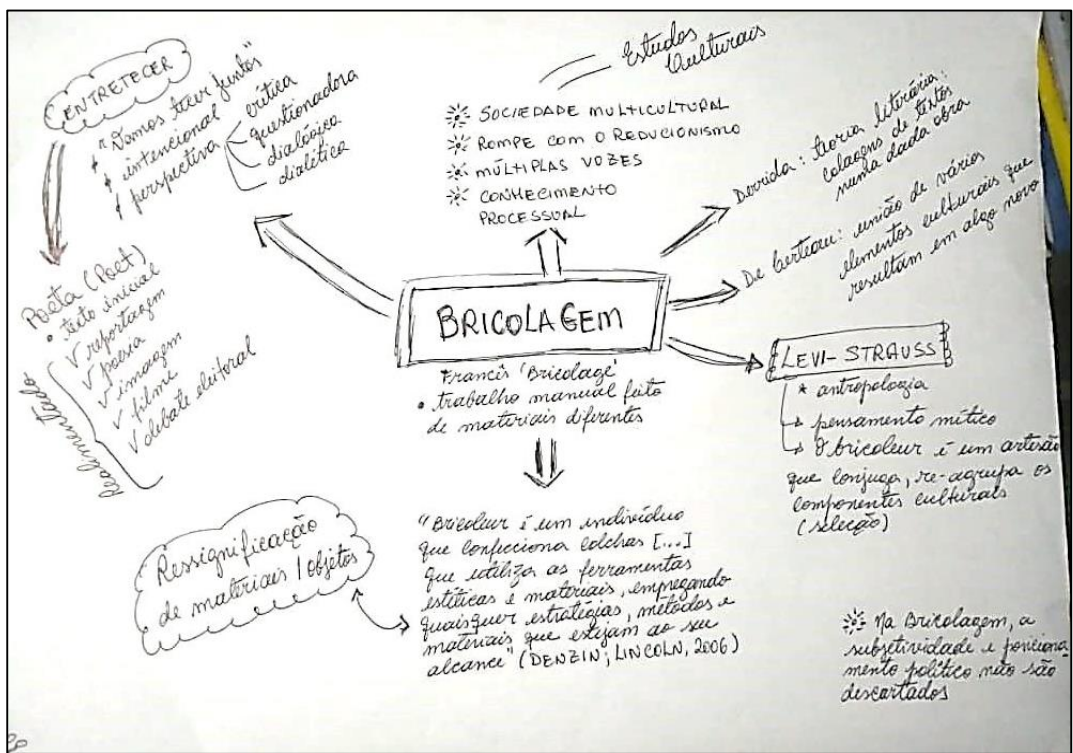 ENTRETECER
"Vamos tecer juntos"
intencional
perspectiva
crítica
questionadora
dialógica
dialética
Poeta (Poet)
• texto inicial
√ reportagem
√ poesia
√ imagem
√ filme
√ debate eleitoral
Realimentado
Estudos
Culturais
SOCIEDADE MULTICULTURAL
ROMPE COM O REDUCIONISMO
MÚLTIPLAS VOZES
CONHECIMENTO
PROCESSUAL
Derrida: teoria literária:
colagens de textos
numa dada obra
De Certeau: união de vários
elementos culturais que
resultam em algo novo
BRICOLAGEM
Francês 'Bricolage'
• trabalho manual feito
de materiais diferentes
LEVI-STRAUSS
* antropologia
pensamento mítico
O bricoleur é um artesão
que conjuga, re-agrupa os
componentes culturais
(seleção)
Ressignificação
de materiais / objetos
"Bricoleur é um indivíduo
que confecciona colchas [...]
que utiliza as ferramentas
estéticas e materiais, empregando
quaisquer estratégias, métodos e
materiais que estejam ao seu
alcance" (DENZIN; LINCOLN, 2006)
Na Bricolagem, a
subjetividade e posiciona
mento político não são
descartados